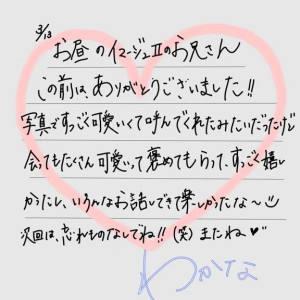 3/13
お昼のイマージュⅡのお兄さん
この前は、ありがとうございました!!
写真ですっごく可愛いくて呼んでくれたみたいだったけど
会ってもたくさん可愛いって褒めてもらって、すっごく嬉し
かったし、いろんなお話しできて楽しかったな〜
次回は、忘れものなしでね!!(笑)またね♥
わかな